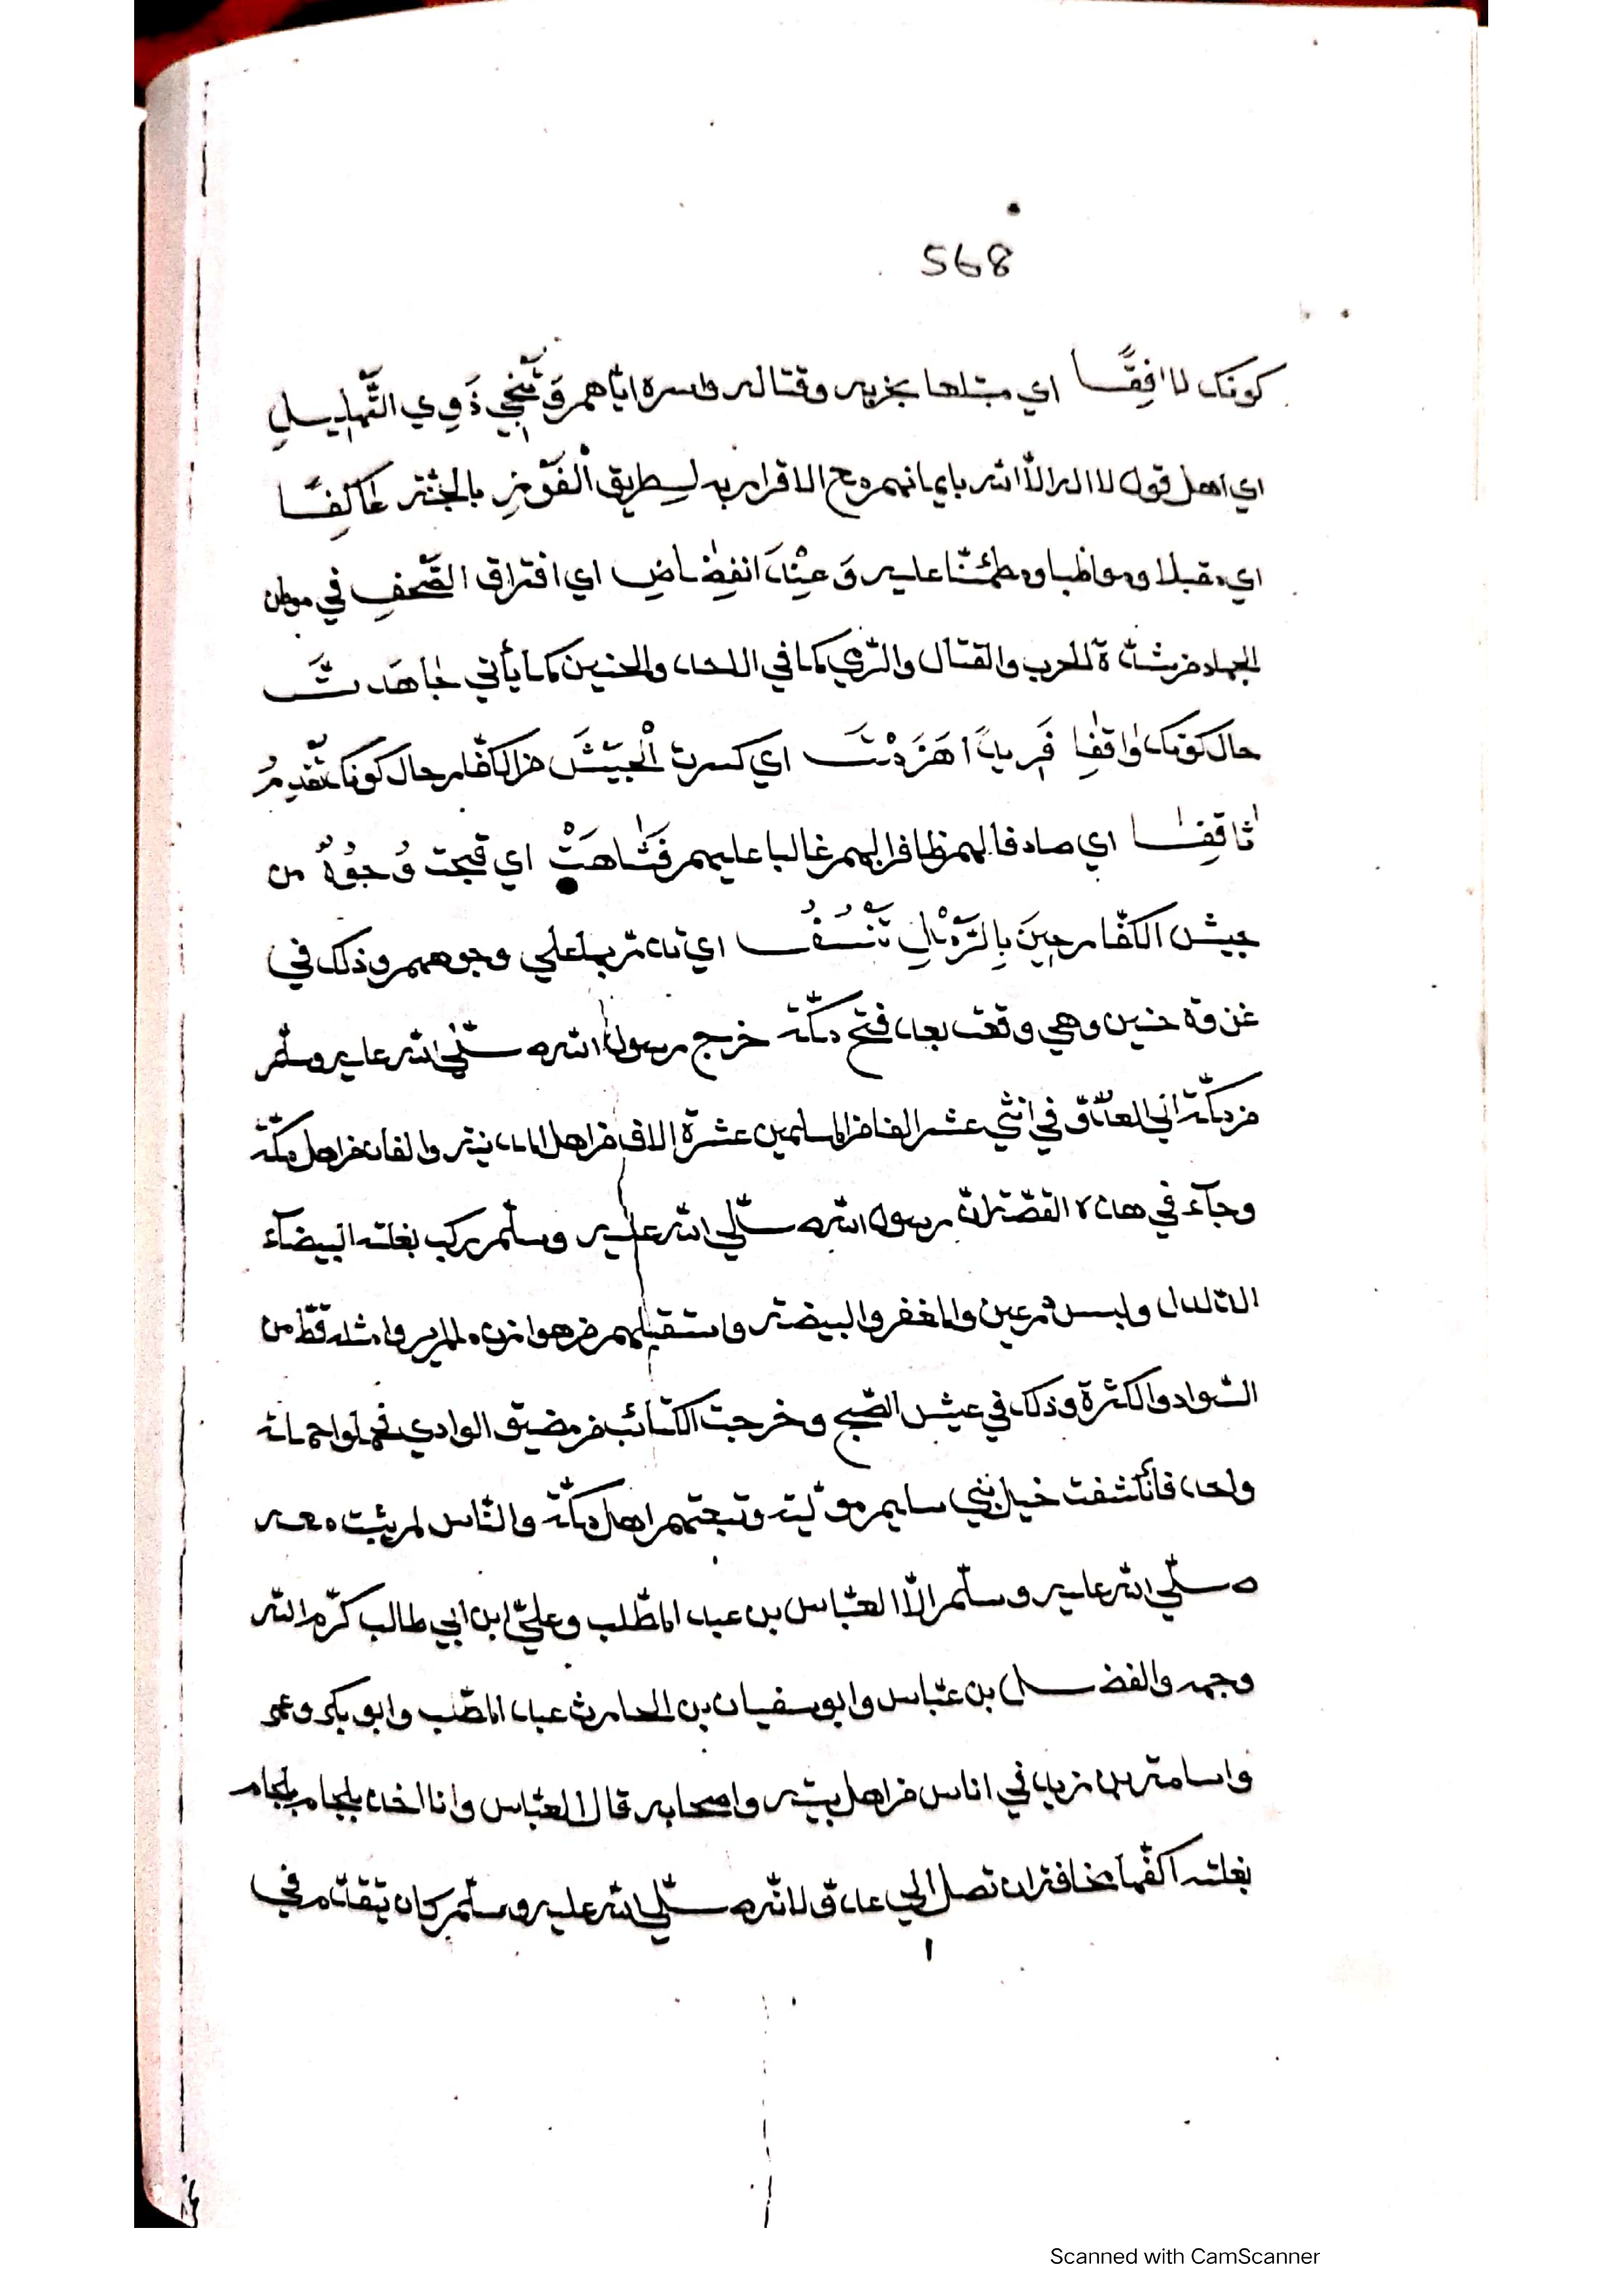 568
كونك لاافِقًا اي مبتلعا بحزبه وقتاله واسره اياهم وَتُنْجِي ذَوِي التَّهْلِيلِ
اي اهل قول لا اله الا الله بايمانهم مع الاقرار به لطريق الْفَوْزِ بالجنة عٰاكِفًا
اي مقبلا ومواظبا ومطمئنا عليه وَعِنْدَ انفِضٰاضِ اي افتراق الصَّحْفِ في موطن
الجهاد من شدة الحرب والقتال والرمي كما في الاحد والحنين كما يأتي جٰاهَدتَّ
حال كونك وٰاقفِا فَرِيدًا هَزَمْتَ اي كسرت الْجَيْشَ من الكفار حال كونك تَقْدِمُ
ثٰاقِفًا اي صادفا لهم ظافرا بهم غالبا عليهم فَشٰاهَتْ اي قبحت وُجُوُهٌ من
جيش الكفار حِينَ بِالرَّمْلِ تَنْسُفُ اي تذريها علي وجوههم وذلك في
غزوة حنين وهي وقعت بعد فتح مكّة خرج رسول الله صلّي الله عليه وسلّم
من مكّة الي العدّو في اثني عشر الفا من المسلمين عشرة الاف من اهل المدينة والفان من اهل مكّة
وجآء في هذه القصّة ان رسول الله صلّي الله عليه وسلّم ركب بغلته البيضآء
الدلدل ولبس درعين والمغفر والبيضة واستقبلهم من هوازن ما لم يروا مثله قطّ من
السّواد والكثرة وذلك في غبش الصّبح وخرجت الكتائب من مضيق الوادي فحملوا حملة
واحدة فأنكشفت خيل بني سليم مولّية وتبعتهم اهل مكّة والنّاس لم يثبت معه
صلّي الله عليه وسلّم الّا العبّاس بن عبد المطّلب وعليّ ابن ابي طالب كرّم الله
وجهه والفضل بن عبّاس وابو سفيان بن الحارث عبد المطّلب وابو بكر وعمر
واسامة بن زيد في اناس من اهل بيته واصحابه قال العبّاس وانا اخذ بلجام بلجام
بغلته اكفّها مخافة ان تصل الي عدوّ لانّه صلّي الله عليه وسلّم كان يتقدّم في
Scanned with CamScanner